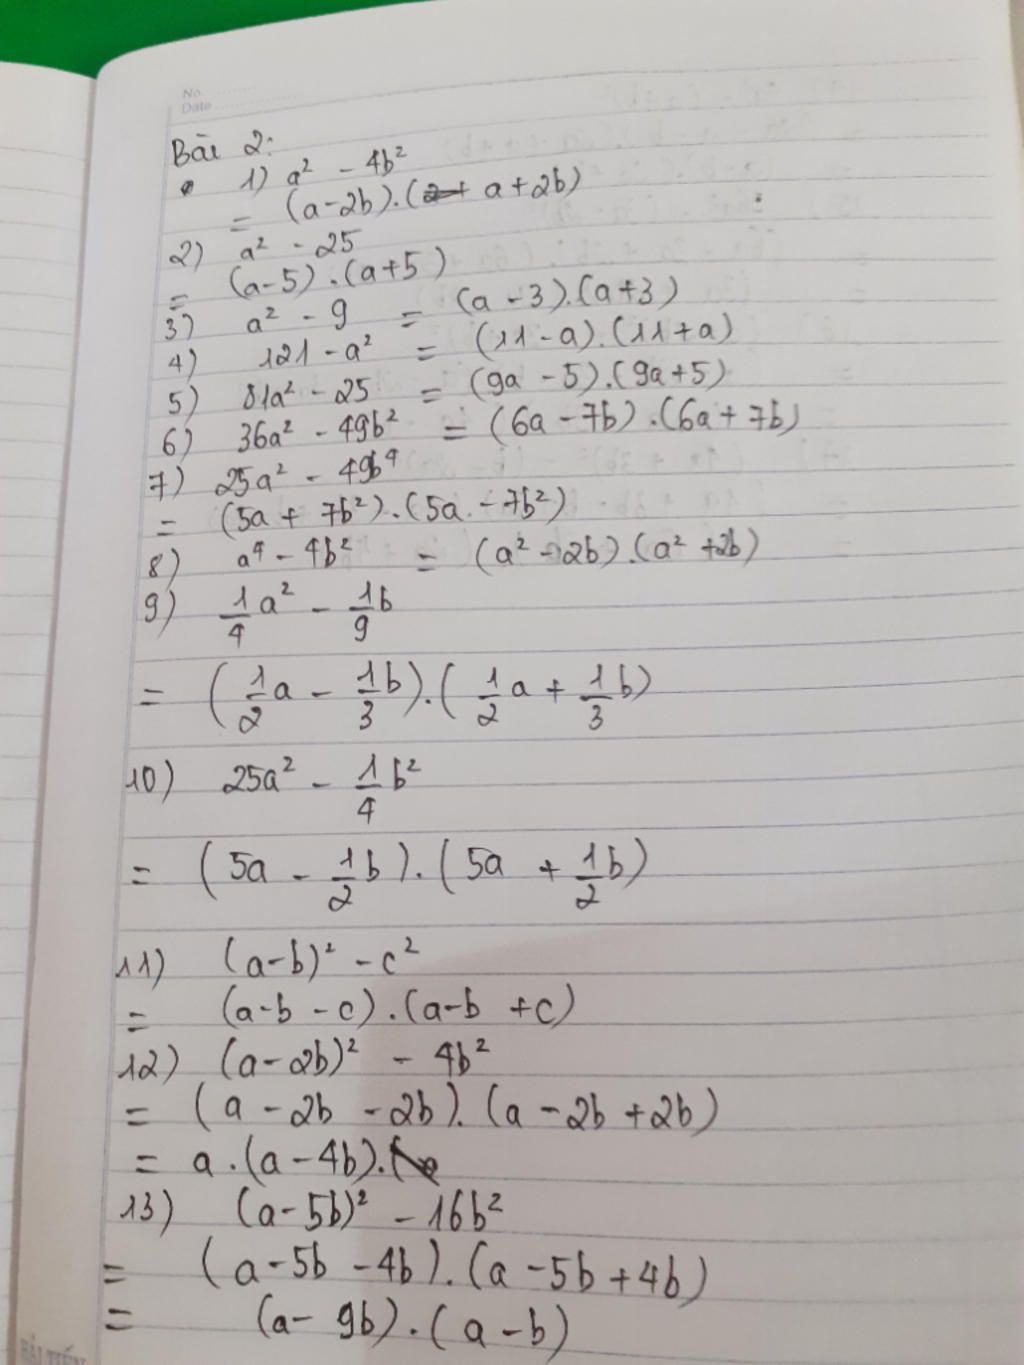 No.
Date
Bài 2:
1) a² - 4b²
= (a-2b).(a+2b)
2) a² - 25
= (a-5).(a+5)
3) a² - 9 = (a-3).(a+3)
4) 121-a² = (11-a).(11+a)
5) 81a² - 25 = (9a-5).(9a+5)
6) 36a² - 49b² = (6a-7b).(6a+7b)
7) 25a² - 49b⁴
= (5a + 7b²).(5a - 7b²)
8) a⁴ - 4b² = (a² - 2b).(a² + 2b)
9) 1/4 a² - 1/9 b
= (1/2 a - 1/3 b).(1/2 a + 1/3 b)
10) 25a² - 1/4 b²
= (5a - 1/2 b).(5a + 1/2 b)
11) (a-b)² - c²
= (a-b-c).(a-b+c)
12) (a-2b)² - 4b²
= (a-2b-2b).(a-2b+2b)
= a.(a-4b).
13) (a-5b)² - 16b²
= (a-5b-4b).(a-5b+4b)
= (a-9b).(a-b)
HẢI TIẾN